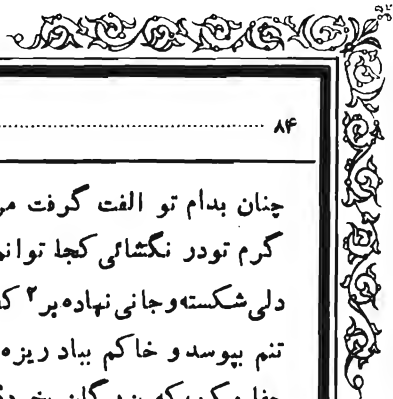 ۸۴
چنان بدام تو الفت گرفت
گرم تودر نگشائی کجا
دلی شکسته وجانی نهاده بر۲
تنم بپوسد و خاکم بباد ریزه